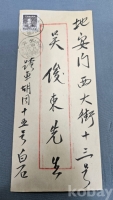 地安门西大街十三号
吴俊东先生
跨車胡同十五号白石
kobay